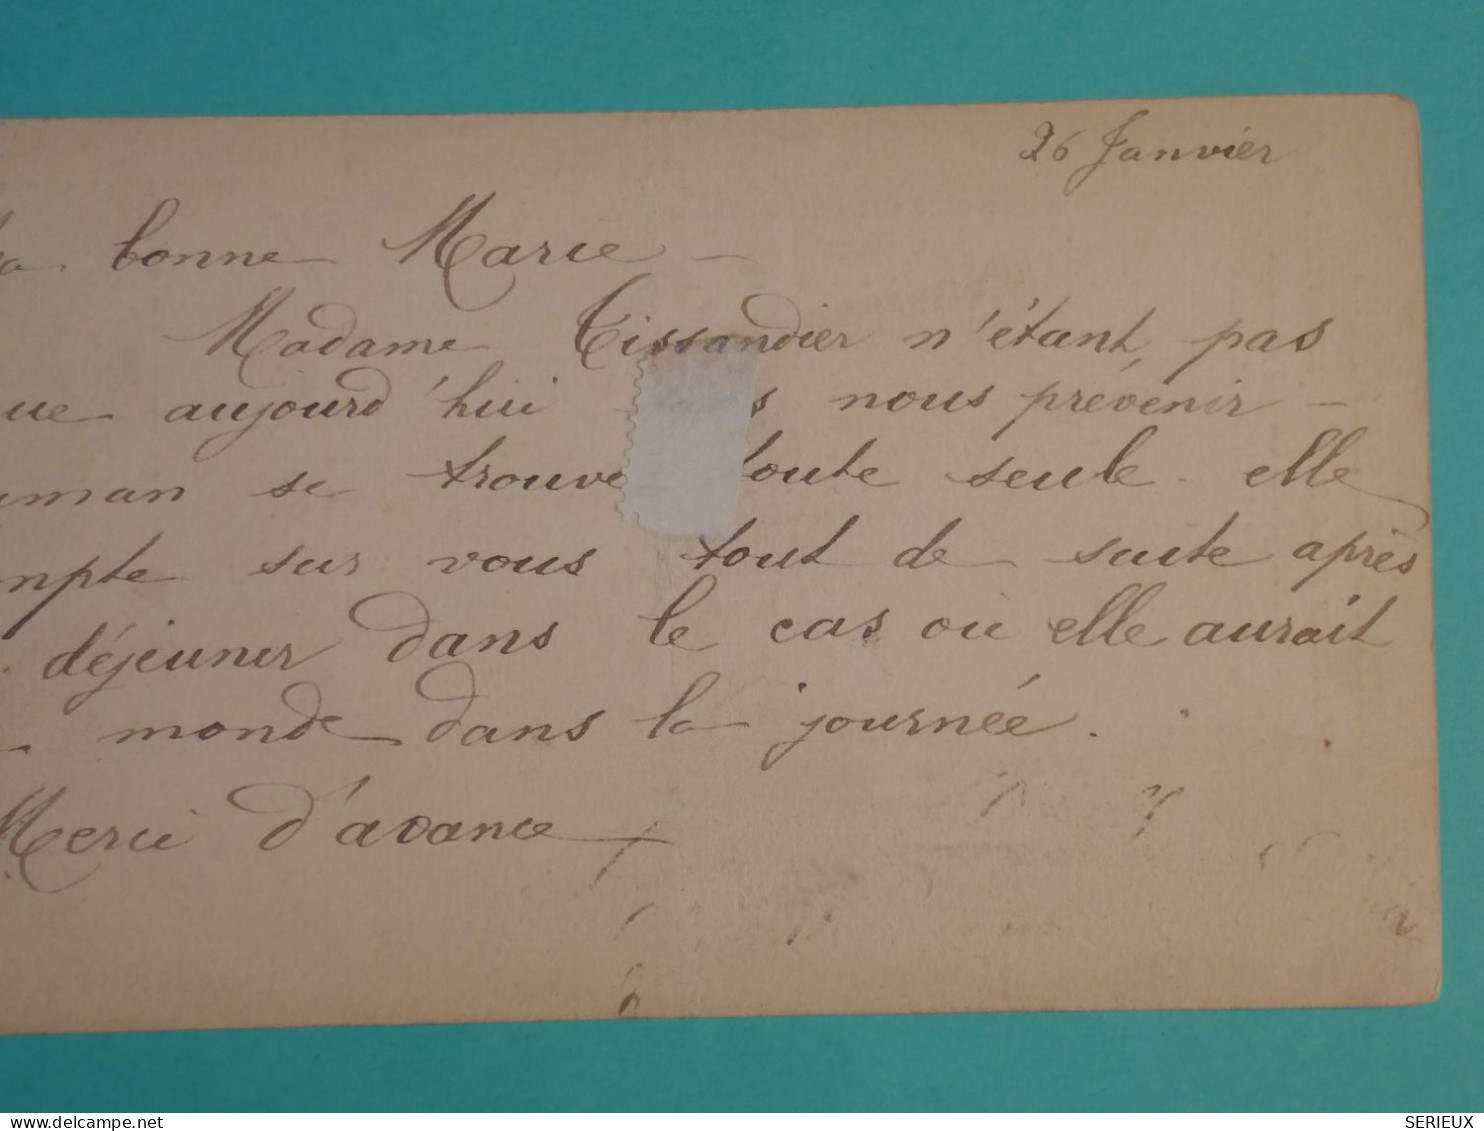 26 Janvier
bonne Marie —
Madame Tissandier n'étant pas
aujourd'hui nous prévenir —
se trouve toute seule. elle
sur vous tout de suite après
déjeuner dans le cas où elle aurait
monde dans la journée.
Merci d'avance
www.delcampe.net
SERIEUX